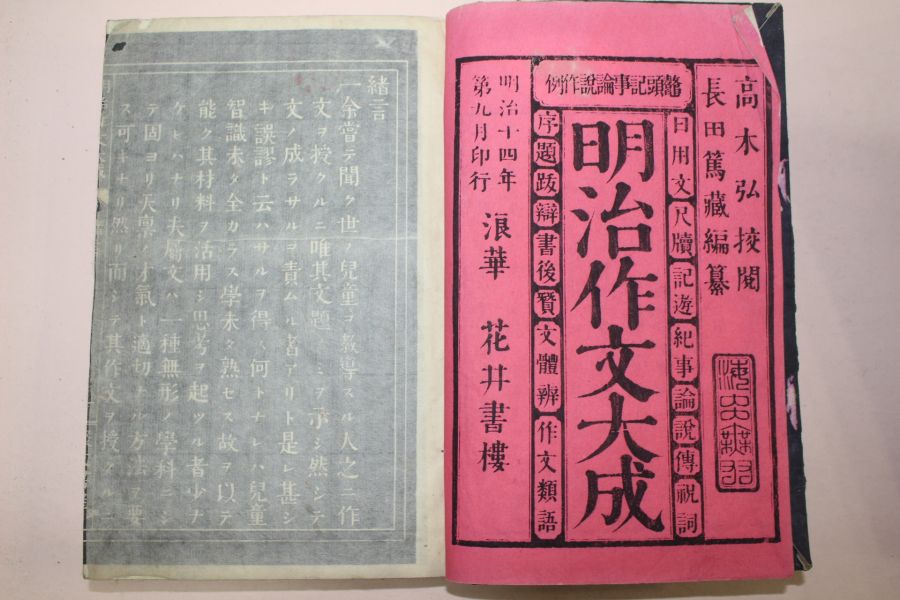 鼇頭記事論説作例
高木弘挍閲
長田篤藏編纂
日用文尺牘記遊紀事論説傳祝詞
明治作文大成
序題跋辯書後賛文體辨作文類語
明治十四年
第九月印行
浪華 花井書樓
緒言
一余嘗テ聞ク世ノ兒童ヲ教導スル人之ニ作
文ヲ授クルニ唯其文題ノミヲ示シ然シテ
文ノ成ラサルヲ責ムル者アリト是レ甚
キ誤謬ト云ハサルヲ得 何トナレハ兒童
智識未タ全カラス學未 熟セス故ヲ以テ
能ク其材料ヲ活用シ思考ヲ起ツル者少ナ
ケレハナリ夫屬文ハ一種無形ノ學科ニシ
テ固ヨリ天稟ノ才氣ト適切ナル方法ヲ要
ス可キナリ然リ而シテ其作文ヲ授クルニ